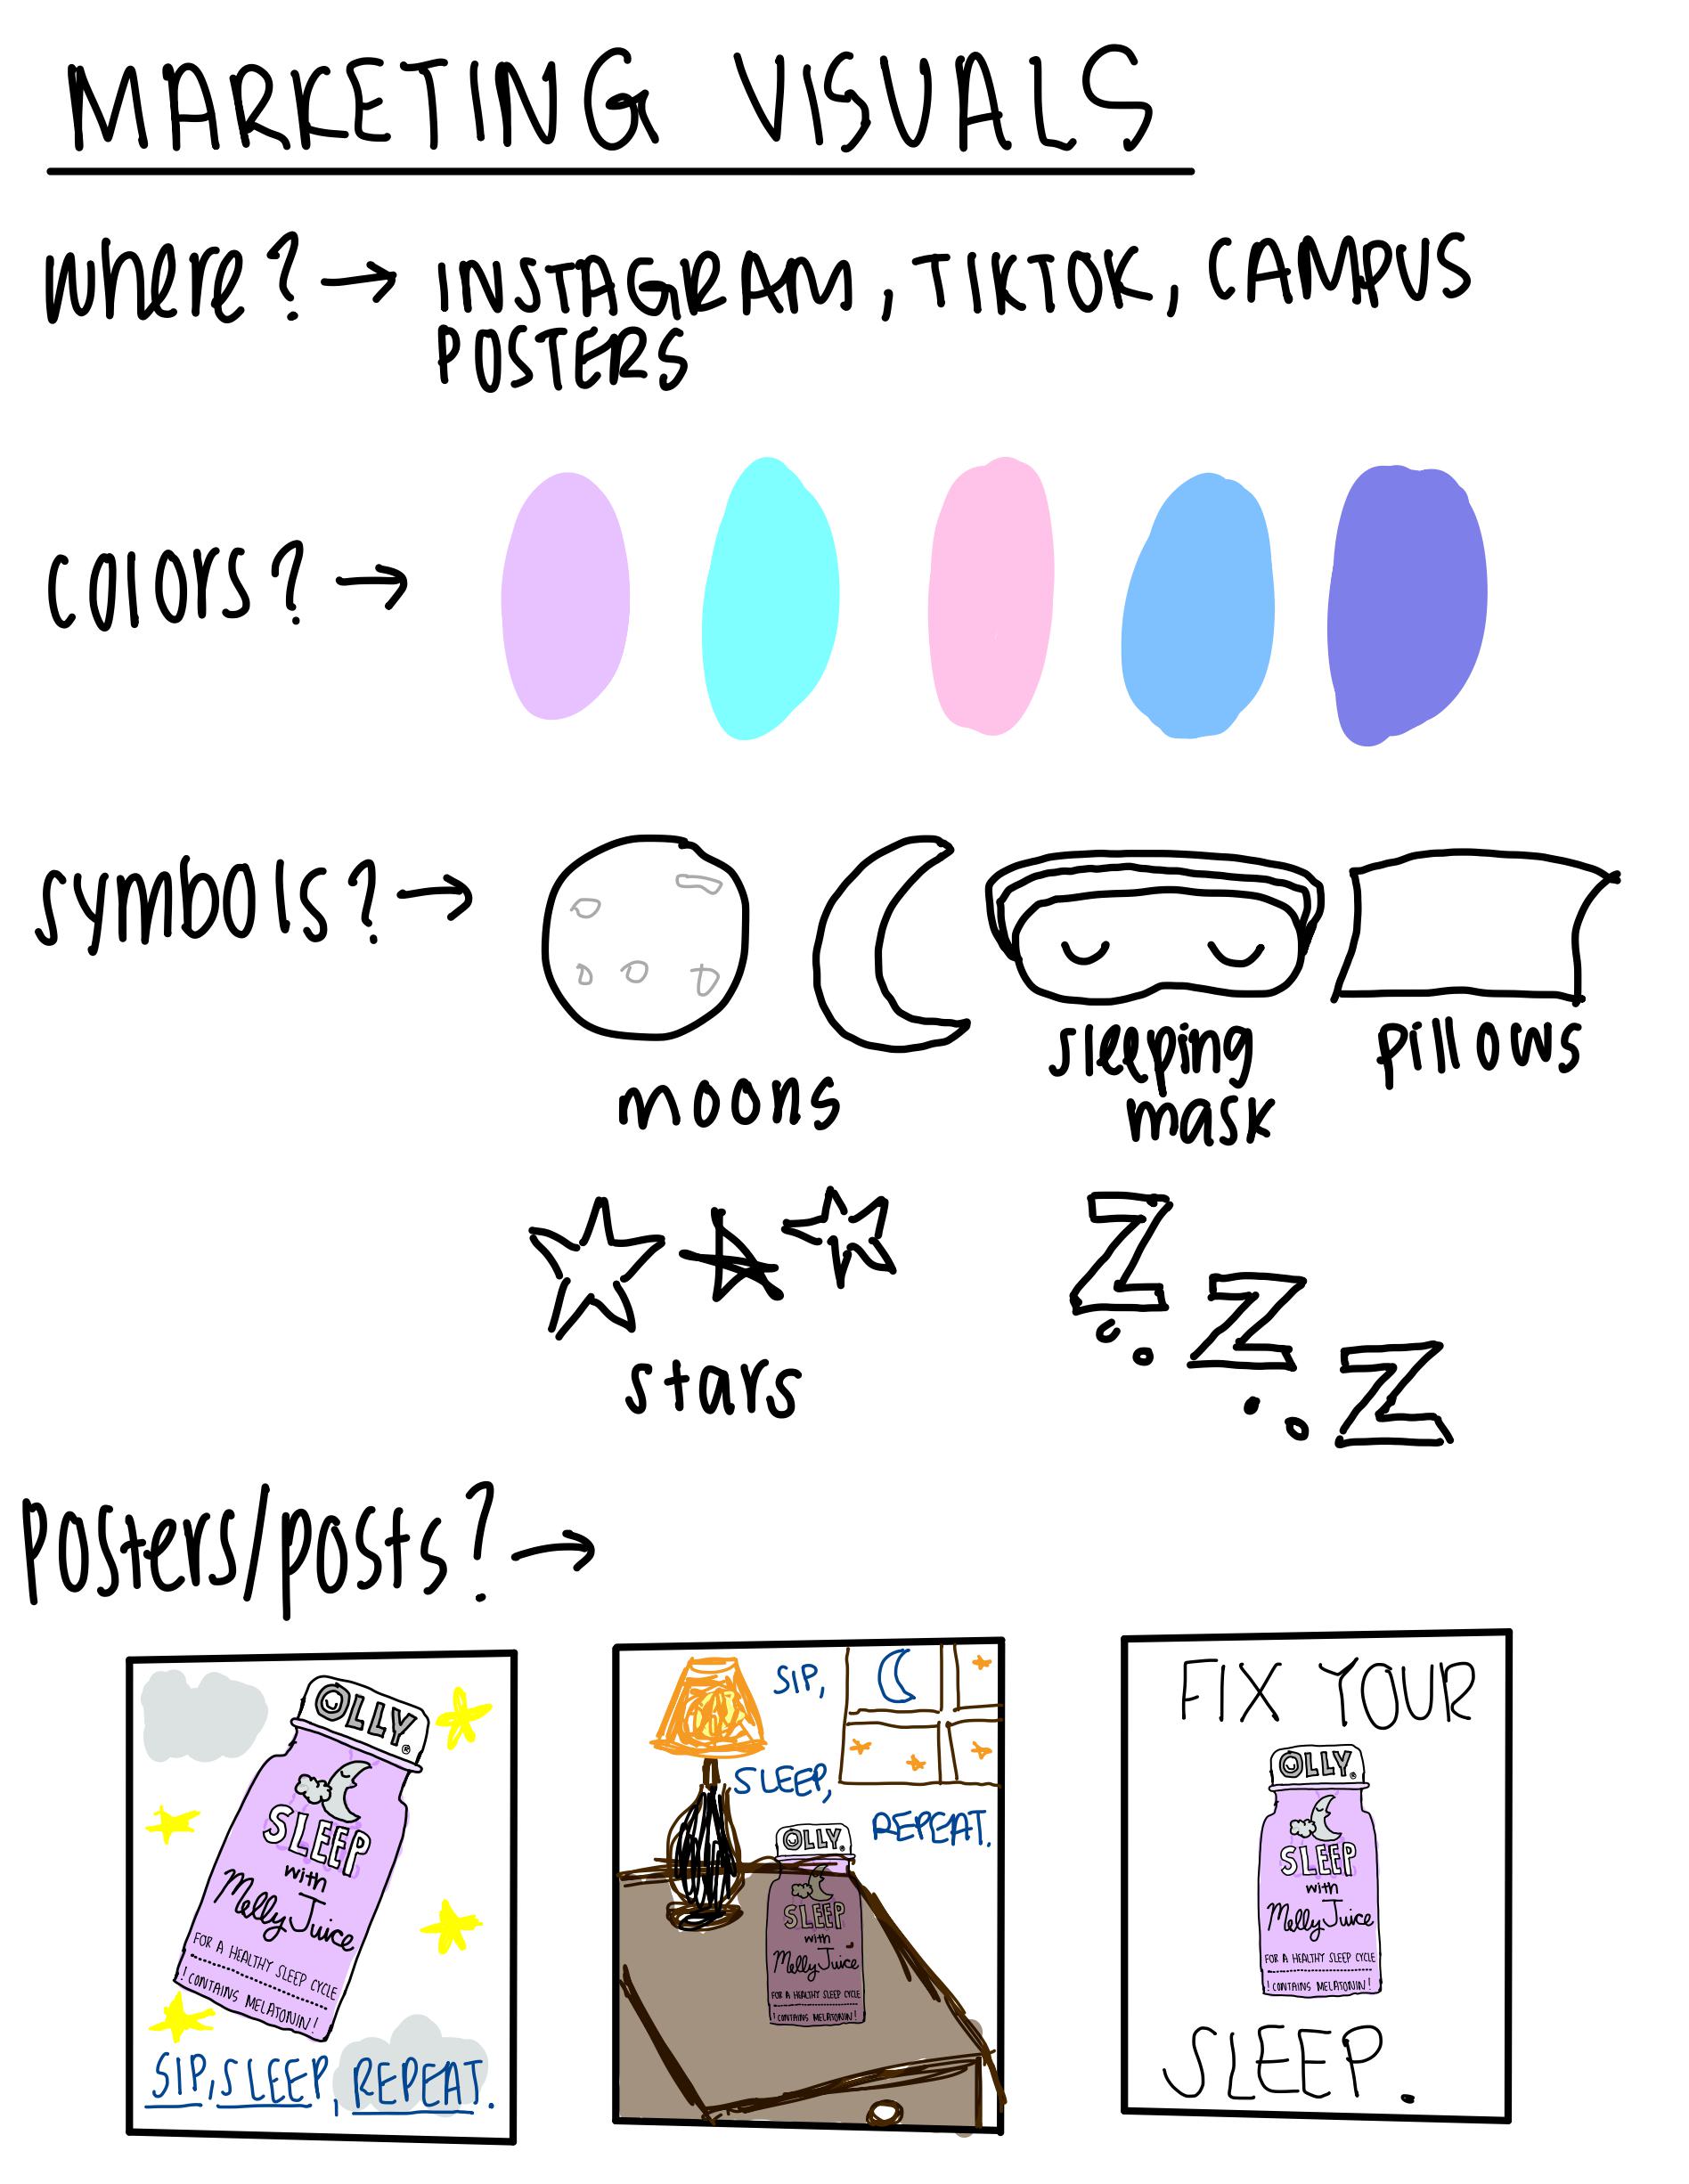 MARKETING VISUALS
where? → INSTAGRAM, TIKTOK, CAMPUS
POSTERS
colors? →
symbols? →
moons
sleeping
mask
pillows
stars
Z
Z
Z
Posters/posts? →
OLLY®
SLEEP
with
Melly Juice
FOR A HEALTHY SLEEP CYCLE
! CONTAINS MELATONIN!
SIP, SLEEP, REPEAT.
SIP,
SLEEP,
REPEAT.
OLLY®
SLEEP
with
Melly Juice
FOR A HEALTHY SLEEP CYCLE
! CONTAINS MELATONIN!
FIX YOUR
OLLY®
SLEEP
with
Melly Juice
FOR A HEALTHY SLEEP CYCLE
! CONTAINS MELATONIN!
SLEEP.